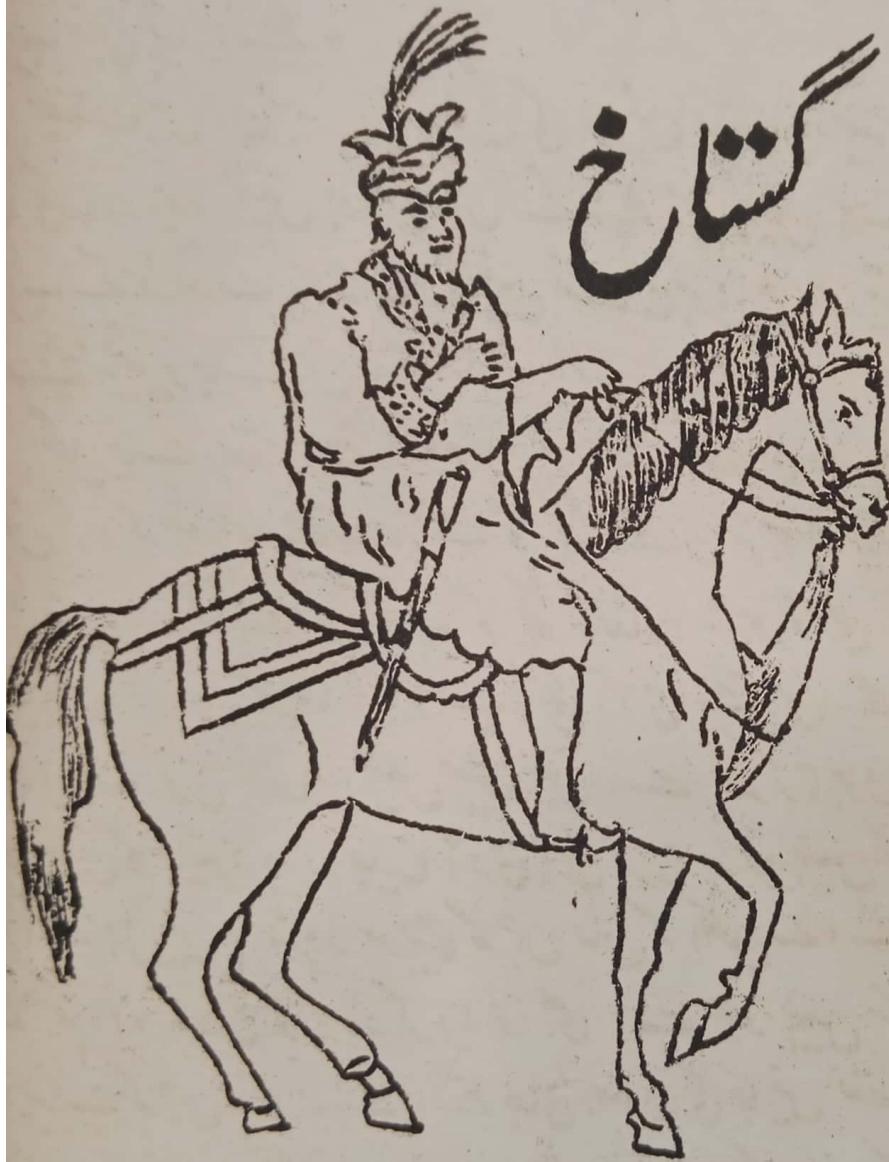 گستاخ